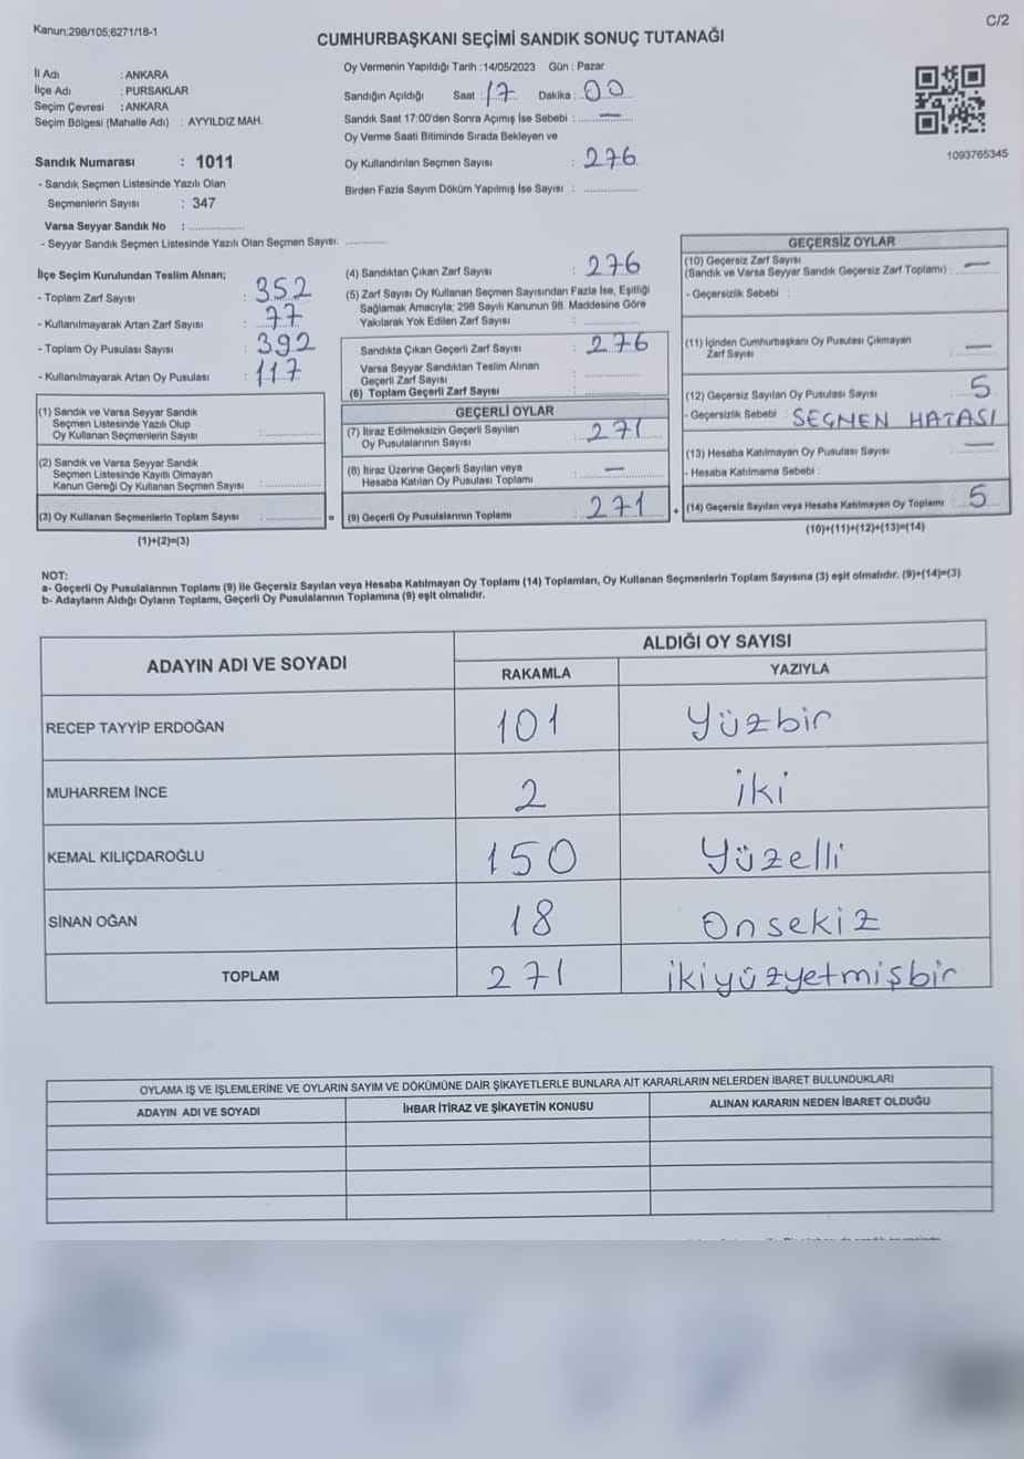 Kanun:298/105;6271/18-1
C/2
CUMHURBAŞKANI SEÇİMİ SANDIK SONUÇ TUTANAĞI
İl Adı : ANKARA
İlçe Adı : PURSAKLAR
Seçim Çevresi : ANKARA
Seçim Bölgesi (Mahalle Adı) : AYYILDIZ MAH.
Sandık Numarası : 1011
- Sandık Seçmen Listesinde Yazılı Olan
Seçmenlerin Sayısı : 347
Varsa Seyyar Sandık No : ..............
- Seyyar Sandık Seçmen Listesinde Yazılı Olan Seçmen Sayısı: ............
Oy Vermenin Yapıldığı Tarih :14/05/2023 Gün : Pazar
Sandığın Açıldığı Saat : 17 Dakika : 00
Sandık Saat 17:00'den Sonra Açımış İse Sebebi : —
Oy Verme Saati Bitiminde Sırada Bekleyen ve
Oy Kullandırılan Seçmen Sayısı : 276
Birden Fazla Sayım Döküm Yapılmış İse Sayısı : ..............
1093765345
İlçe Seçim Kurulundan Teslim Alınan;
- Toplam Zarf Sayısı : 352
- Kullanılmayarak Artan Zarf Sayısı : 77
- Toplam Oy Pusulası Sayısı : 392
- Kullanılmayarak Artan Oy Pusulası : 117
(1) Sandık ve Varsa Seyyar Sandık
Seçmen Listesinde Yazılı Olup
Oy Kullanan Seçmenlerin Sayısı : ..............
(2) Sandık ve Varsa Seyyar Sandık
Seçmen Listesinde Kayıtlı Olmayan
Kanun Gereği Oy Kullanan Seçmen Sayısı : ..............
(3) Oy Kullanan Seçmenlerin Toplam Sayısı : ..............
(1)+(2)=(3)
(4) Sandıktan Çıkan Zarf Sayısı : 276
(5) Zarf Sayısı Oy Kullanan Seçmen Sayısından Fazla İse, Eşitliği
Sağlamak Amacıyla; 298 Sayılı Kanunun 98. Maddesine Göre
Yakılarak Yok Edilen Zarf Sayısı : ..............
Sandıkta Çıkan Geçerli Zarf Sayısı : 276
Varsa Seyyar Sandıktan Teslim Alınan
Geçerli Zarf Sayısı : ..............
(6) Toplam Geçerli Zarf Sayısı : ..............
GEÇERLİ OYLAR
(7) İtiraz Edilmeksizin Geçerli Sayılan
Oy Pusulalarının Sayısı : 271
(8) İtiraz Üzerine Geçerli Sayılan veya
Hesaba Katılan Oy Pusulası Toplamı : —
= (9) Geçerli Oy Pusulalarının Toplamı : 271
GEÇERSİZ OYLAR
(10) Geçersiz Zarf Sayısı
(Sandık ve Varsa Seyyar Sandık Geçersiz Zarf Toplamı) : —
- Geçersizlik Sebebi :
(11) İçinden Cumhurbaşkanı Oy Pusulası Çıkmayan
Zarf Sayısı : —
(12) Geçersiz Sayılan Oy Pusulası Sayısı : 5
- Geçersizlik Sebebi : SEÇMEN HATASI
(13) Hesaba Katılmayan Oy Pusulası Sayısı : —
- Hesaba Katılmama Sebebi :
+ (14) Geçersiz Sayılan veya Hesaba Katılmayan Oy Toplamı : 5
(10)+(11)+(12)+(13)=(14)
NOT:
a- Geçerli Oy Pusulalarının Toplamı (9) ile Geçersiz Sayılan veya Hesaba Katılmayan Oy Toplamı (14) Toplamları, Oy Kullanan Seçmenlerin Toplam Sayısına (3) eşit olmalıdır. (9)+(14)=(3)
b- Adayların Aldığı Oyların Toplamı, Geçerli Oy Pusulalarının Toplamına (9) eşit olmalıdır.
ADAYIN ADI VE SOYADI
ALDIĞI OY SAYISI
RAKAMLA YAZIYLA
RECEP TAYYİP ERDOĞAN 101 Yüzbir
MUHARREM İNCE 2 iki
KEMAL KILIÇDAROĞLU 150 Yüzelli
SİNAN OĞAN 18 Onsekiz
TOPLAM 271 ikiyüzyetmişbir
OYLAMA İŞ VE İŞLEMLERİNE VE OYLARIN SAYIM VE DÖKÜMÜNE DAİR ŞİKAYETLERLE BUNLARA AİT KARARLARIN NELERDEN İBARET BULUNDUKLARI
ADAYIN ADI VE SOYADI İHBAR İTİRAZ VE ŞİKAYETİN KONUSU ALINAN KARARIN NEDEN İBARET OLDUĞU